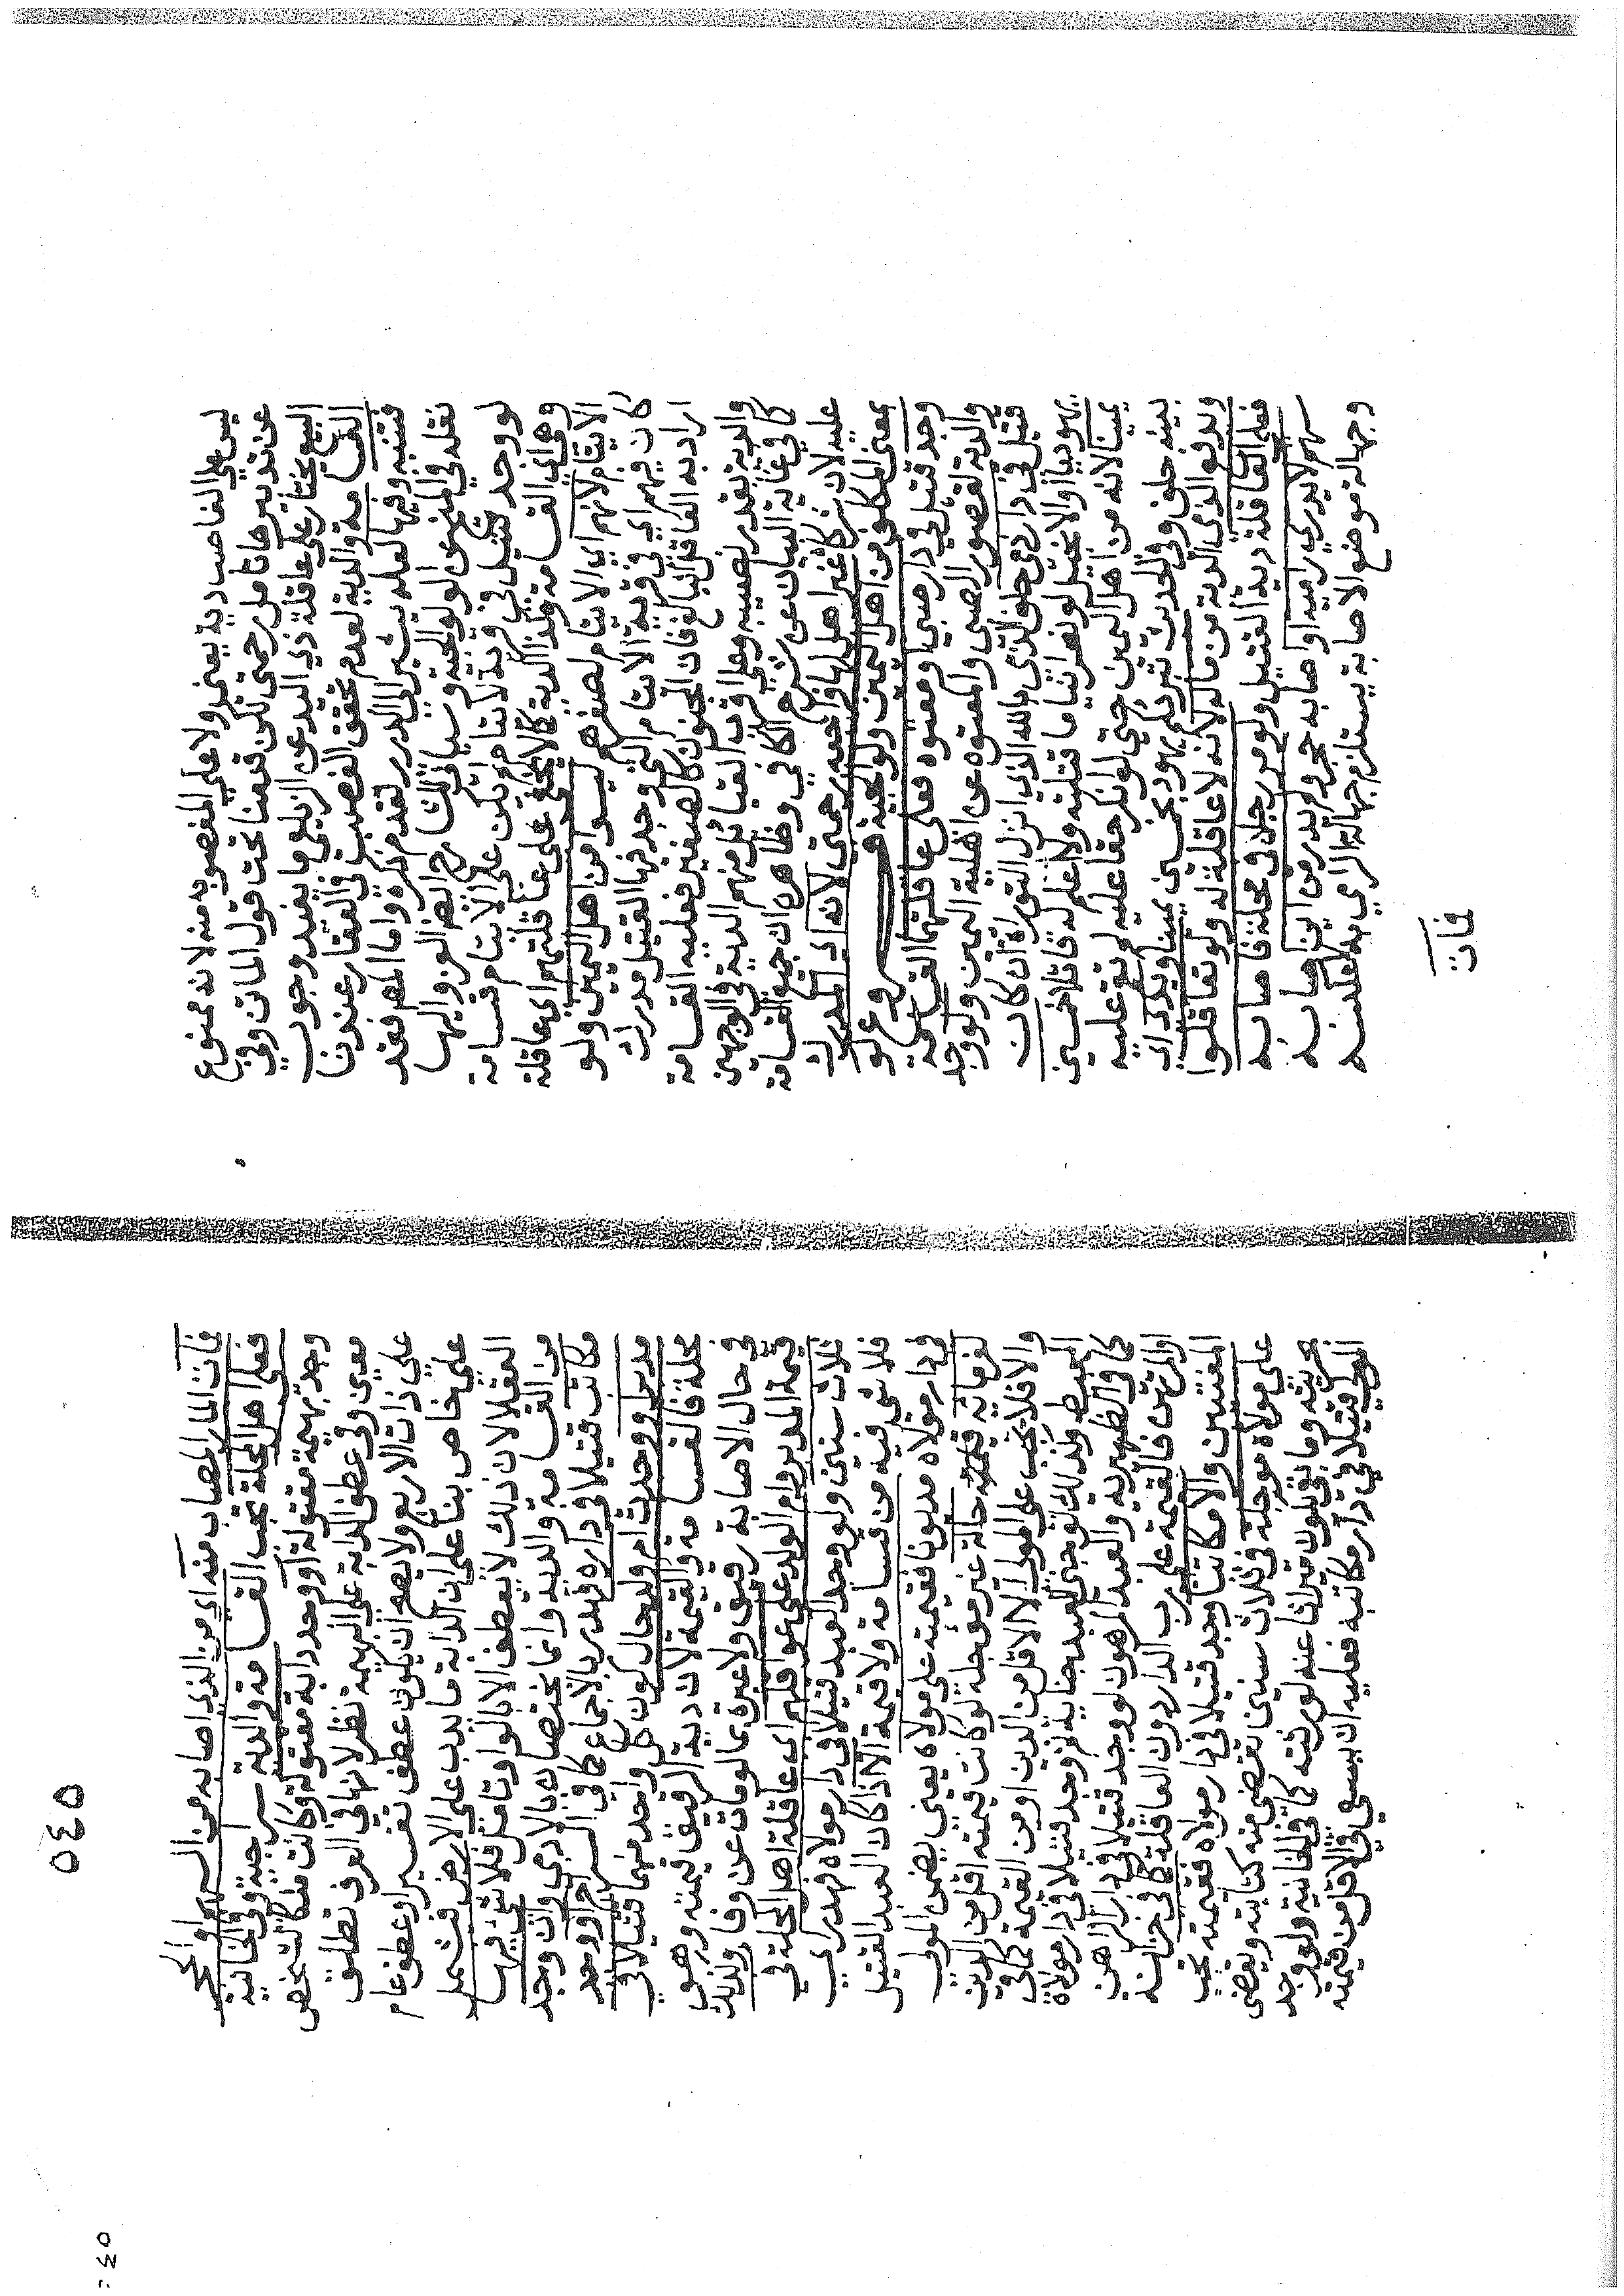 ليس علي الغاصب دية يعني ولا علي المغصوب منه لانه ممنوع
عن تدبيرها تامل رحمتي لكن قدمنا تحت قول الماتن وفي
البيع بخيار علي عاقلة ذي اليد عن الزيلعي ما يفيد وجوب
القسامة والدية لعدم تحقق الغصب في العقار عندنا
فتنبه وفيها لعله يشير الي الدرر لتقدم ذكره واما المص فقد
نقله في المنح عن الولوالجية وسياتي للشارح العزو اليها
لو وجد قتيل في قرية لايتام لم يكن علي الايتام قسامة
وهي اي القسامة وكذا الدية كما لا يخفى علي عاقلتهم اي عاقلة
الايتام لانهم اي الايتام لصغرهم ليسوا من اهل اليمين ولو
كان فيهم اي في قرية الايتام التي وجد فيها القتيل مدرك
اراد به العاقل البالغ فان المجنون كالصغير فعليه القسامة
والدية بقدر نصيبه وعلي اقرب القبائل منهم الدية في الوجهين
كما في غاية البيان عن شرح الكافي وظاهره ان جميع القسامة
عليه لان شركاه غير اهل لها فراجعه رحمتي لانه اي المدرك
بمعني المكلف من اهل اليمين ولوالجية فروع لو
وجد قتيل في دار صبي او معتوه فعلي عاقلتهما القسامة
والدية لقصور الصبي والمعتوه عن اهلية اليمين ولو وجد
قتيل في دار ذمي حلف الذمي بالله الذي انزل التوراة ان كان
يهوديا او الانجيل لو نصرانيا ما قتلته ولا اعلم له قاتلا خمسين
يمينا لانه من اهل اليمين حتي لو انكر حقا عليه لم تقم عليه
بينة حلف وفي الحديث تبرئكم يهود بخمسين يمينا ويدي اي
ويدفع الذمي الدية من ماله لانه لا عاقلة له ولو تعاقلوا
فعلي العاقلة دية القتيل ولو مر رجل في محلة فاصابه
سهم لا يدري راميه او اصابه حجر ولم يدر من اين اصابه
وجهالة موضع الاصابة يستلزم جهالة الرامي به لا عكسه
فات
٥٤٥
فات المار المصاب منه اي من الذي اصابه من السهم او الحجر
فعلي اهل المحلة تجب القسامة والدية سراجية وفي الخانية
وجد بهيمة مقتولة او وجد دابة مقتولة وكانت ملكا لشخص
معين وفي عطف الدابة علي البهيمة نظر لانها في العرف تطلق
علي ذات الاربع ولا يصح ان يكون عطف تفسير او عطف عام
علي خاص بناء علي ان الدابة ما يدب علي الارض فتشمل
العقلا لان ذلك لا يعطف الا بالواو تامل فلا شي فيها
من القسامة والدية وانما يختصان بالادمي وان وجد
مكاتب قتيلا في داره فهدر بالاجماع كما في السراج او وجد
مدبر او وجدت ام ولد حال كون كل واحد منهما قتيلا في
محلة فالقسامة والقيمة لان دية الرقيق قيمته وهو
في حال الاصابة رقيق ولا عبرة بما لو مات عن وفا ولذلك
قيمة المدبر وام الولد علي عواقلهم اي عاقلة اهل المحلة في
ثلاث سنين ولو وجد العبد قتيلا في دار مولاه فهدر اي
فلا شي فيه من قسامة ولا قيمة الا اذا كان العبد القتيل
في دار مولاه مديونا فقيمته علي مولاه يعني يضمن المولي
لغرمائه قيمته حالة غير موجلة لو كانت قيمته اقل من الدين
والا فلا يجب علي المولي الا الاقل من الدين او من القيمة كما في
المحيط وكذلك لو جني العبد جناية ثم وجد قتيلا في دار مولاه
كما في الظهيرية والعبد المرهون لو وجد قتيلا في دار الراهن
او المرتهن فالقيمة علي رب الدار دون العاقلة كما في خزانة
المفتين والا مكاتبا وجد قتيلا في دار مولاه فقيمته تجب
علي مولاه موجلة في ثلاث سنين تقضي منه كتابته ويقضي
بحريته وما بقي يكون ميراثا عنه لورثته كما في الخانية ولو وجد
المولي قتيلا في دار مكاتبه فعليه ان يسعي في الاقل من قيمته